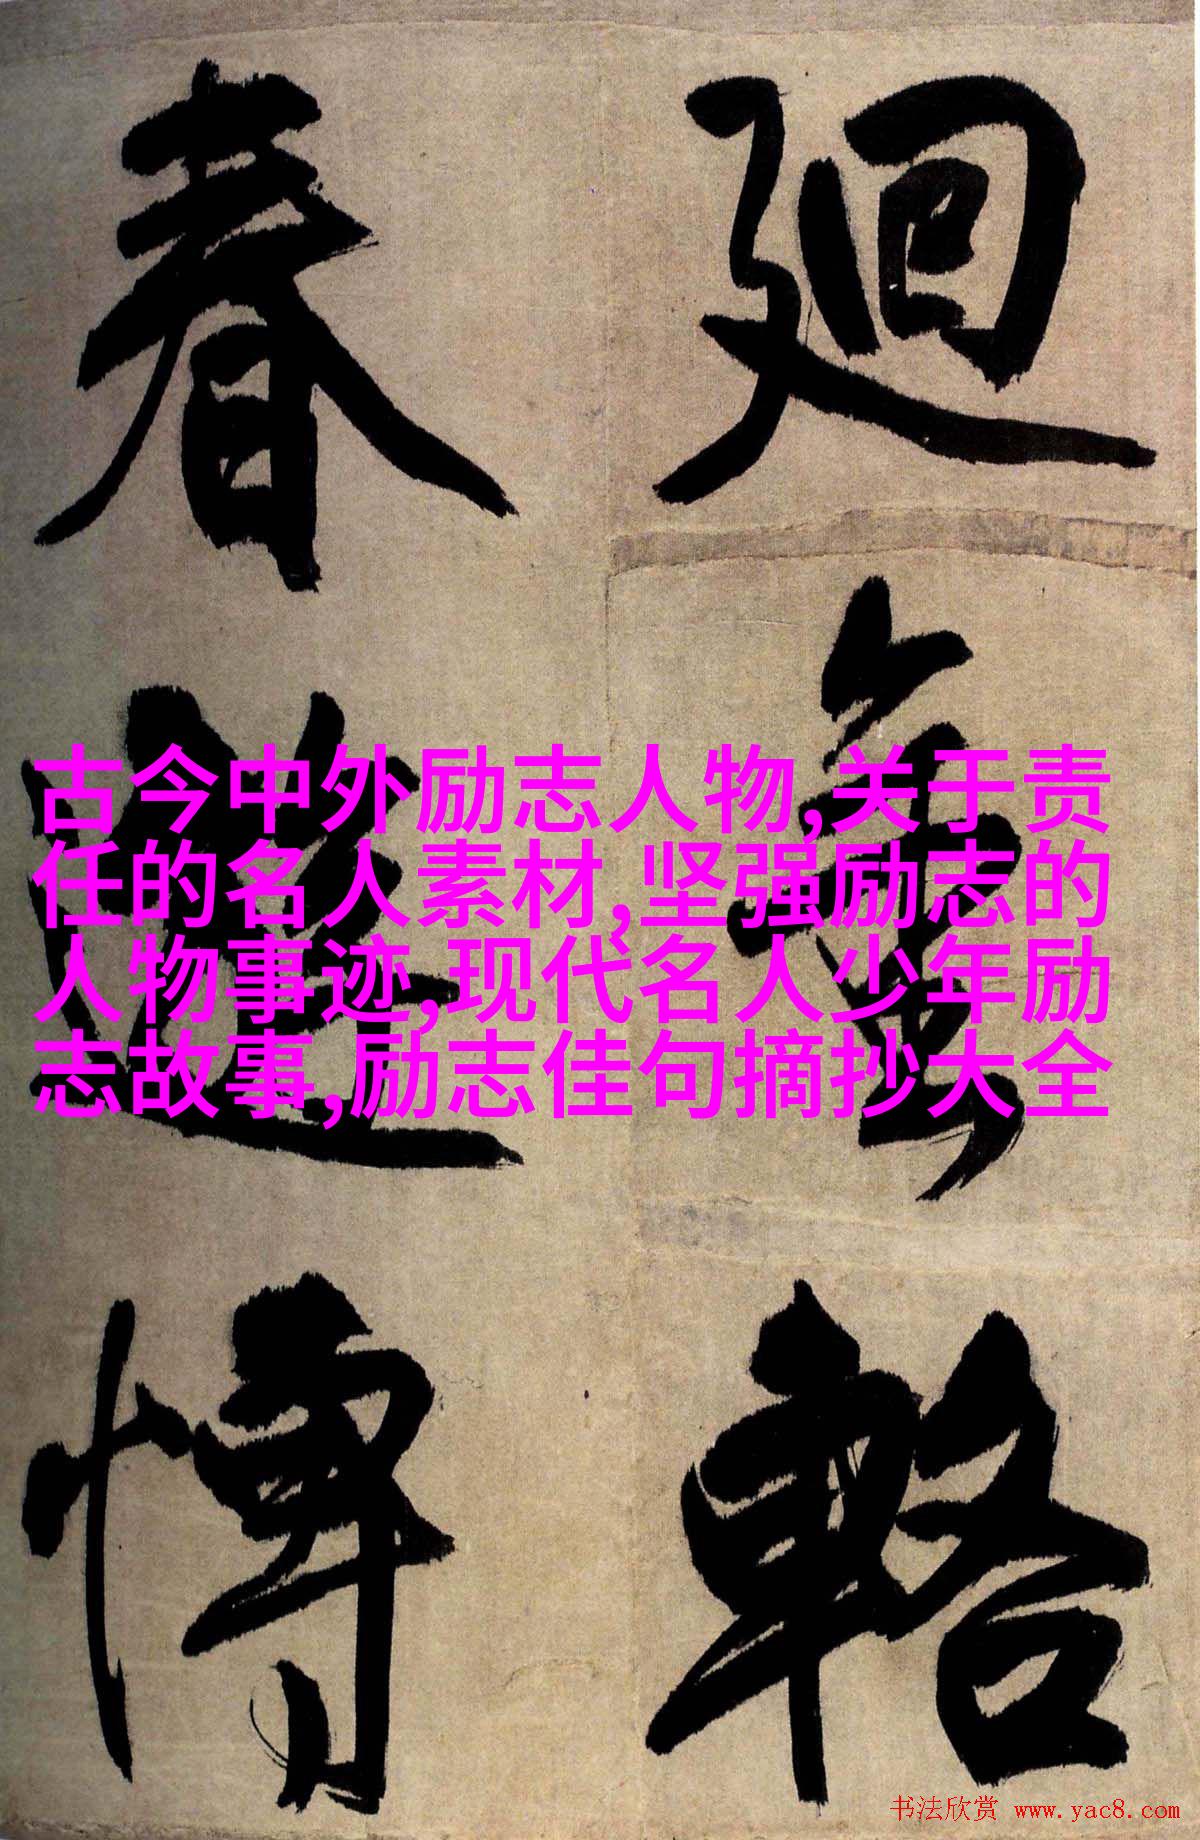 廻 輅
春 博
古今中外励志人物,关于责
任的名人素材,坚强励志的
人物事迹,现代名人少年励
志故事,励志佳句摘抄大全
书法欣赏 www.yac8.com